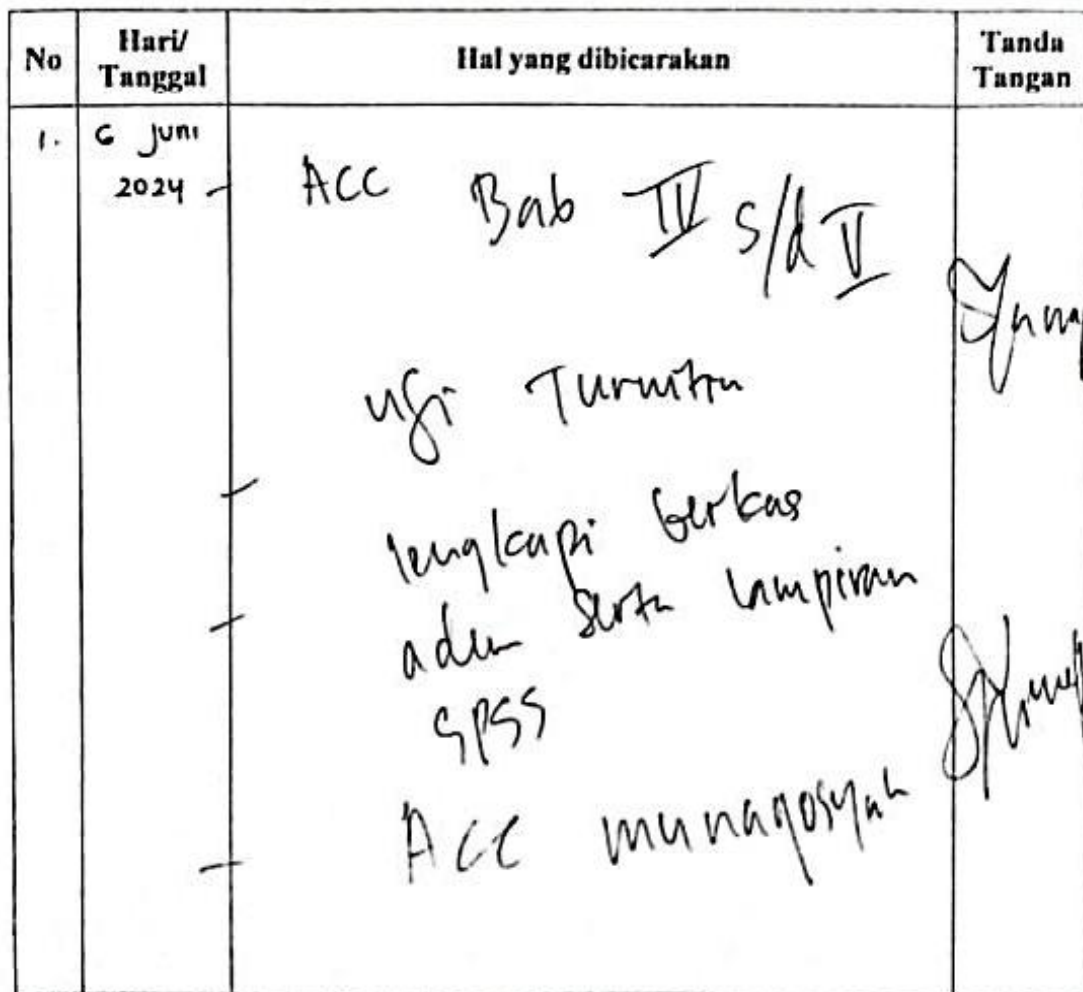 No
Hari/
Tanggal
Hal yang dibicarakan
Tanda
Tangan
1.
6 Juni
2024 -
ACC Bab IV s/d V
- uji Turnitin
- lengkapi berkas
adm serta lampiran
SPSS
- ACC munaqosyah